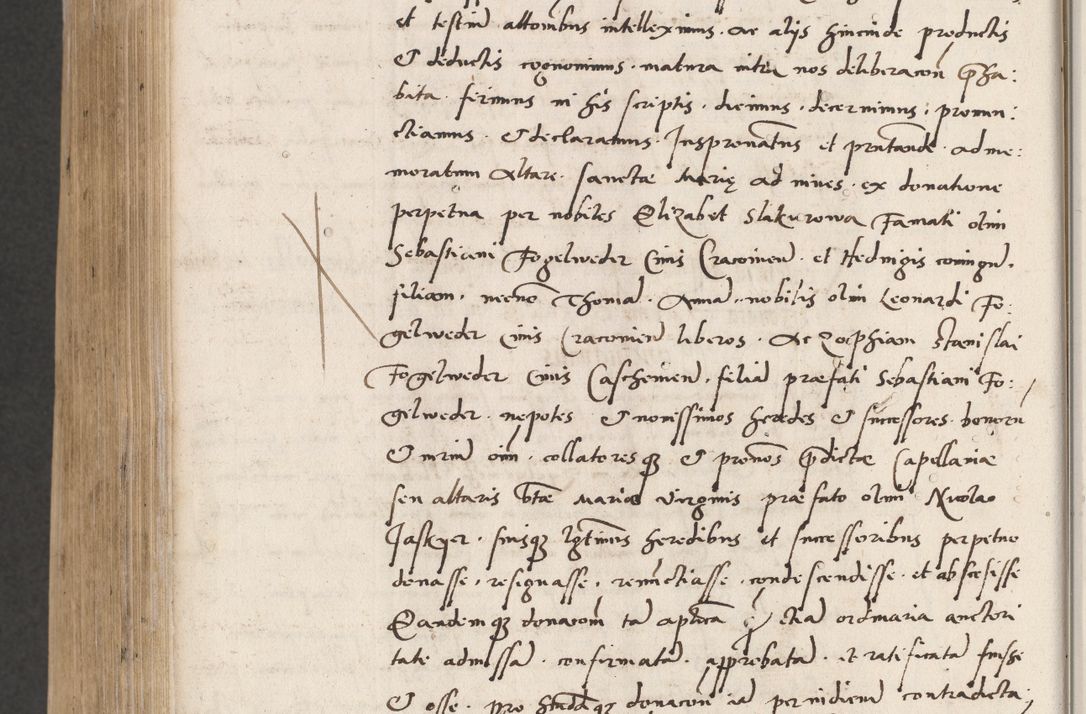 et testiū attonibus intelleximus. ac alijs hincinde productis
& deductis cognouimus. matura inter nos deliberacoñ p̃ha:
bita. firmus in his scriptis. dicimus. decernimus, pronun:
ctiamus. & declaramus. Juspronatus et pñtandi. ad me:
moratum Altare. sanctæ Marię ad niues. ex donatione
perpetua per nobiles Elizabet Slakurowa Famati olim
Sebastiani Fogelweder Ciuis Cracouieñ. et Hedwigis coniugū.
filiam. necnō Thomā. Annā. nobilis olim Leonardi Fo:
gelweder Ciuis Cracouieñ liberos. Ac Zophiam Stanislai
Fogelweder Ciuis Caschouieñ. filiā præfati Sebastiani Fo:
gelweder. nepotes & nouissimos heredes & successores. bonorū
& iuriū oīm. collatores q3 & pronos p̃dictæ Capellaniæ
seu altaris btæ Mariæ virginis præfato olim Nicolao
Jaskyer. suisq3 lgtimis heredibus et successoribus perpetuo
donasse. resignasse. renūctiasse. condescendisse. et abscesisse
Eandemq3 donacom̄ tā aplicā q̃ etiā ordinaria auctori
tate admissā. confirmatā. approbatā. et ratificatā fuisse
& esse. pro hmodiq3 donacoñ contradicta: